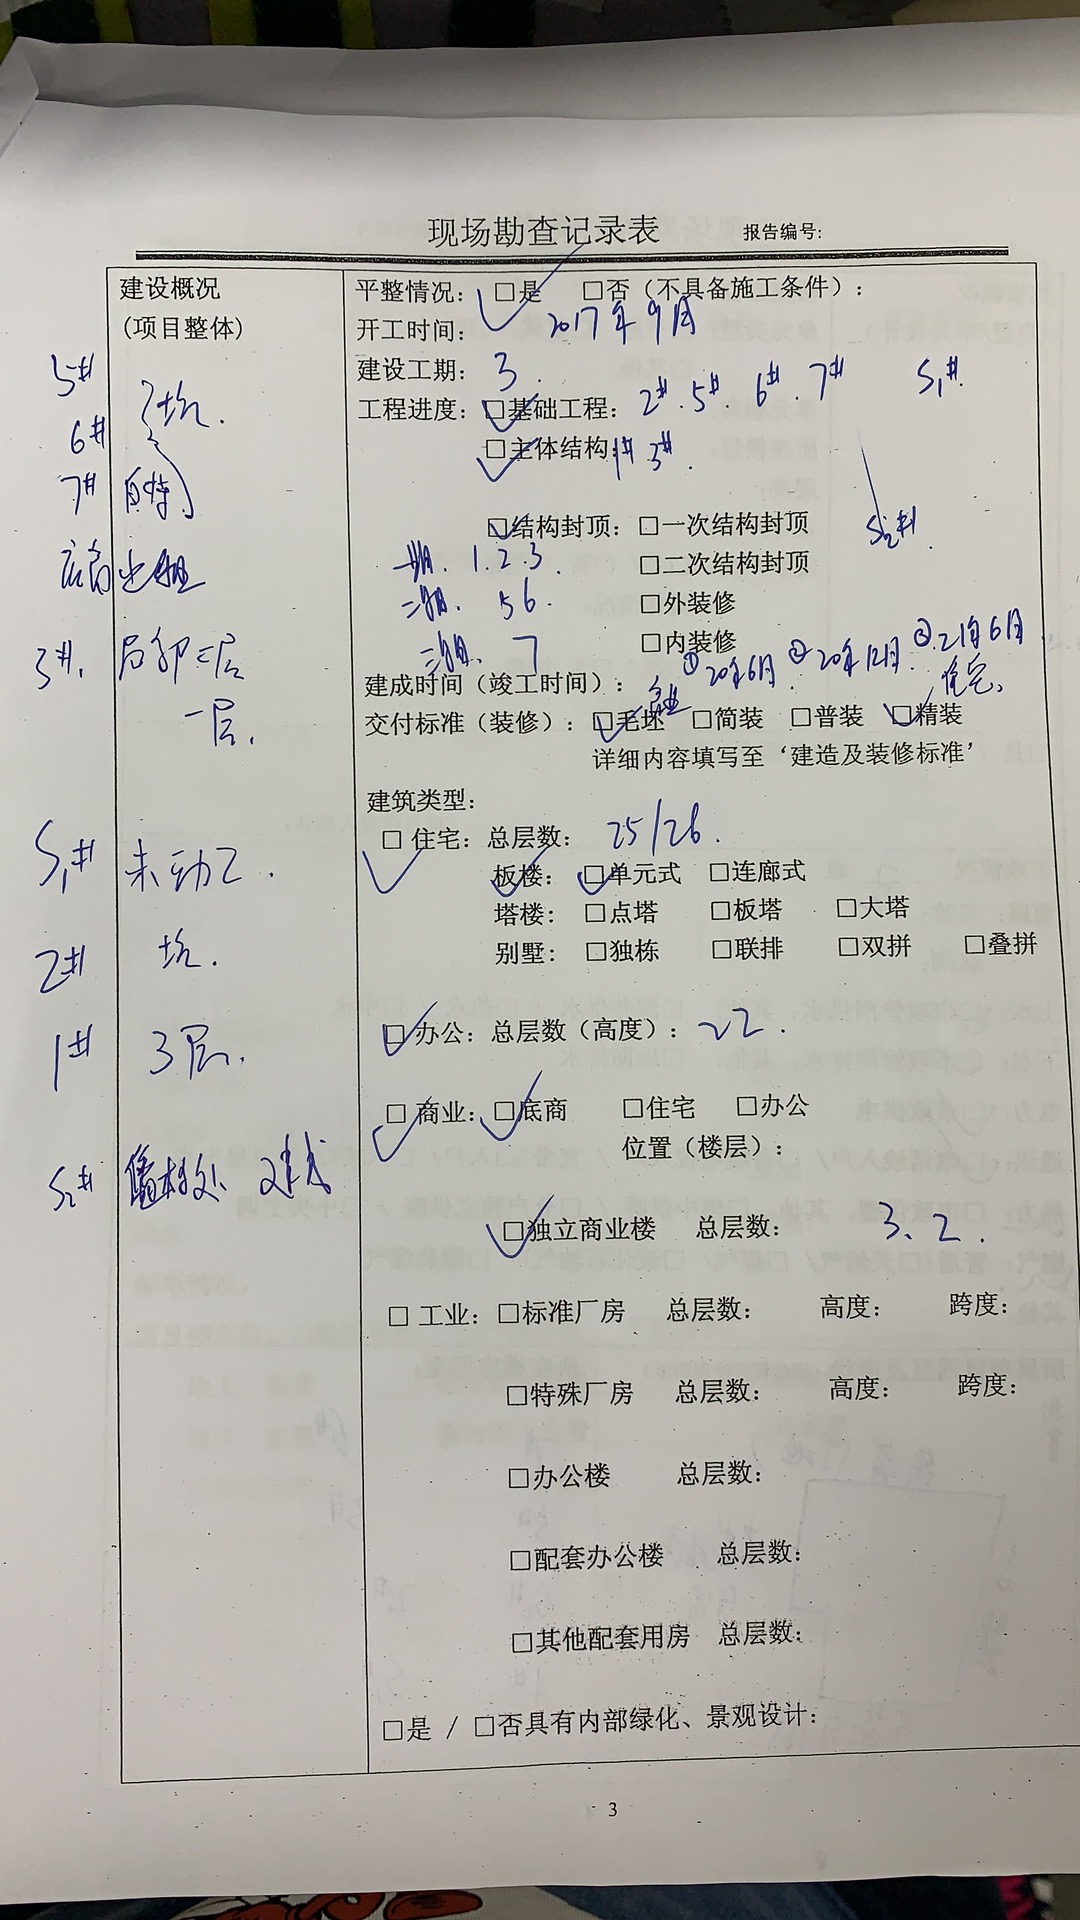 现场勘查记录表 报告编号:
建设概况
(项目整体)
5#
6# 坑.
7# 自持
底商 出租
3#. 局部二层
一层.
S1# 未动工.
2# 坑.
1# 3层.
S2# 售楼处 已建成
平整情况: ☑是 □否(不具备施工条件):
开工时间: 2017年9月
建设工期: 3.
工程进度: ☑基础工程: 2#.5# 6# 7# S1#.
☑主体结构: 1# 3#.
☑结构封顶: □一次结构封顶 S2#.
一期. 1.2.3. □二次结构封顶
二期. 5 6. □外装修
三期. 7 □内装修
建成时间(竣工时间): ①20年6月. ②20年12月. ③.21年6月
交付标准(装修): ☑毛坯 商业 □简装 □普装 ☑精装 住宅、
详细内容填写至‘建造及装修标准’
建筑类型:
☑ 住宅: 总层数: 25/26.
板楼: ☑单元式 □连廊式
塔楼: □点塔 □板塔 □大塔
别墅: □独栋 □联排 □双拼 □叠拼
☑办公: 总层数(高度): 22.
☑ 商业: ☑底商 □住宅 □办公
位置(楼层):
☑独立商业楼 总层数: 3、2.
□ 工业: □标准厂房 总层数: 高度: 跨度:
□特殊厂房 总层数: 高度: 跨度:
□办公楼 总层数:
□配套办公楼 总层数:
□其他配套用房 总层数:
□是 / □否具有内部绿化、景观设计:
3